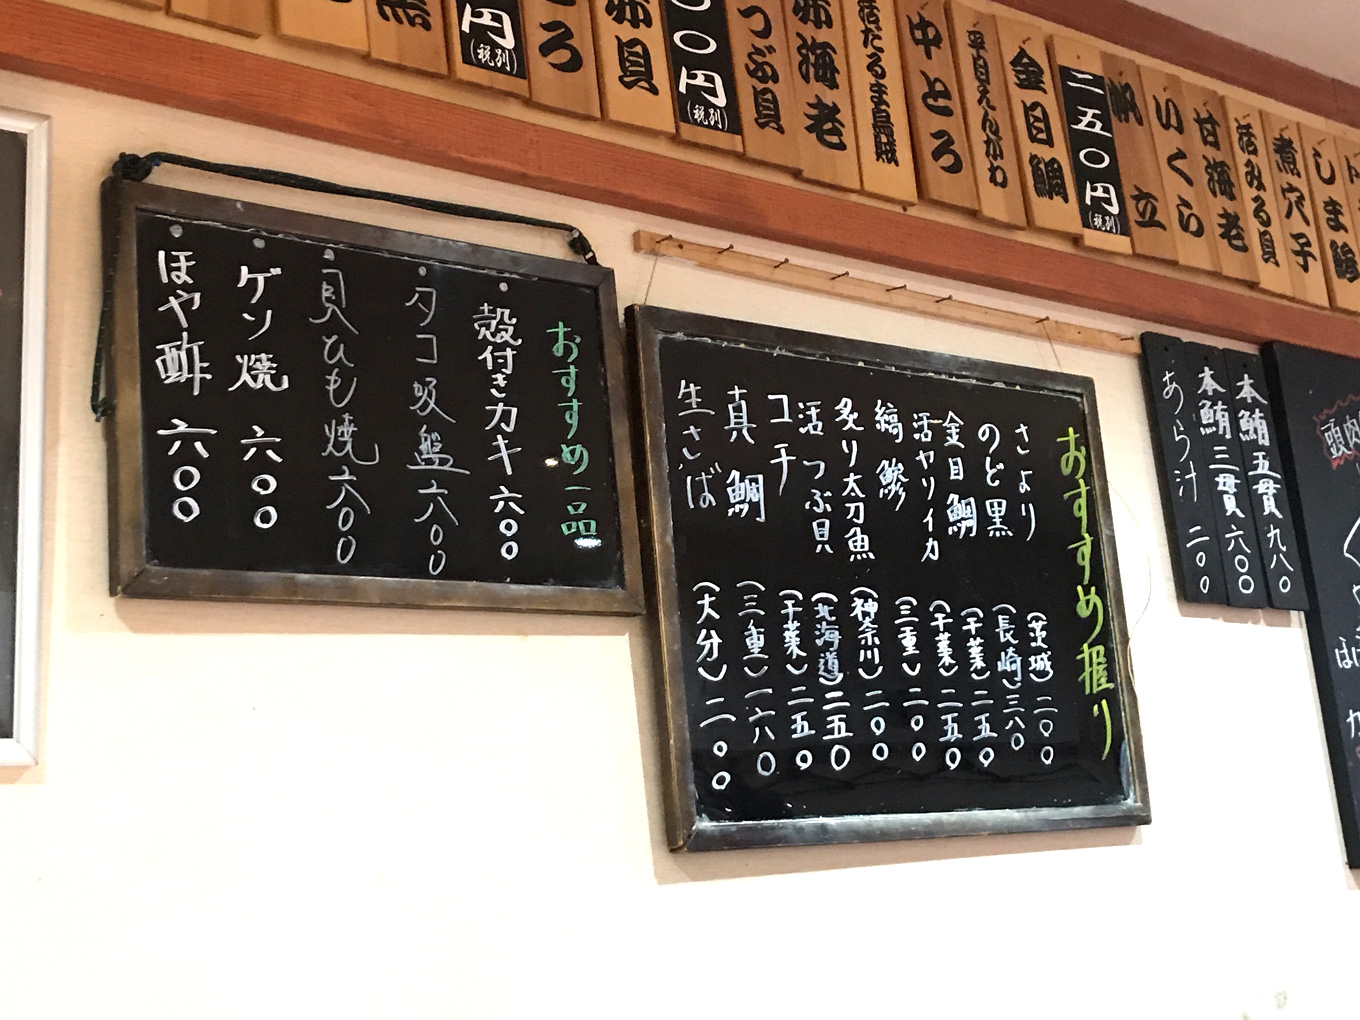 しま鯵
煮穴子
活みる貝
甘海老
いくら
帆立
二五〇円(税別)
金目鯛
平目えんがわ
中とろ
活だるま烏賊
赤海老
つぶ貝
〇円(税別)
赤貝
とろ
円(税別)
頭肉
本鮪五貫九八〇
本鮪三貫六〇〇
あら汁 二〇〇
おすすめ握り
さより (茨城) 二〇〇
のど黒 (長崎) 三八〇
金目鯛 (千葉) 二五〇
活ヤリイカ (千葉) 二五〇
縞鯵 (三重) 二〇〇
炙り太刀魚 (神奈川) 二〇〇
活つぶ貝 (北海道) 二五〇
コチ (千葉) 二五〇
真鯛 (三重) 一八〇
生さば (大分) 二〇〇
おすすめ一品
殻付きカキ 六〇〇
タコ吸盤 六〇〇
貝ひも焼 六〇〇
ゲソ焼 六〇〇
ほや酢 六〇〇